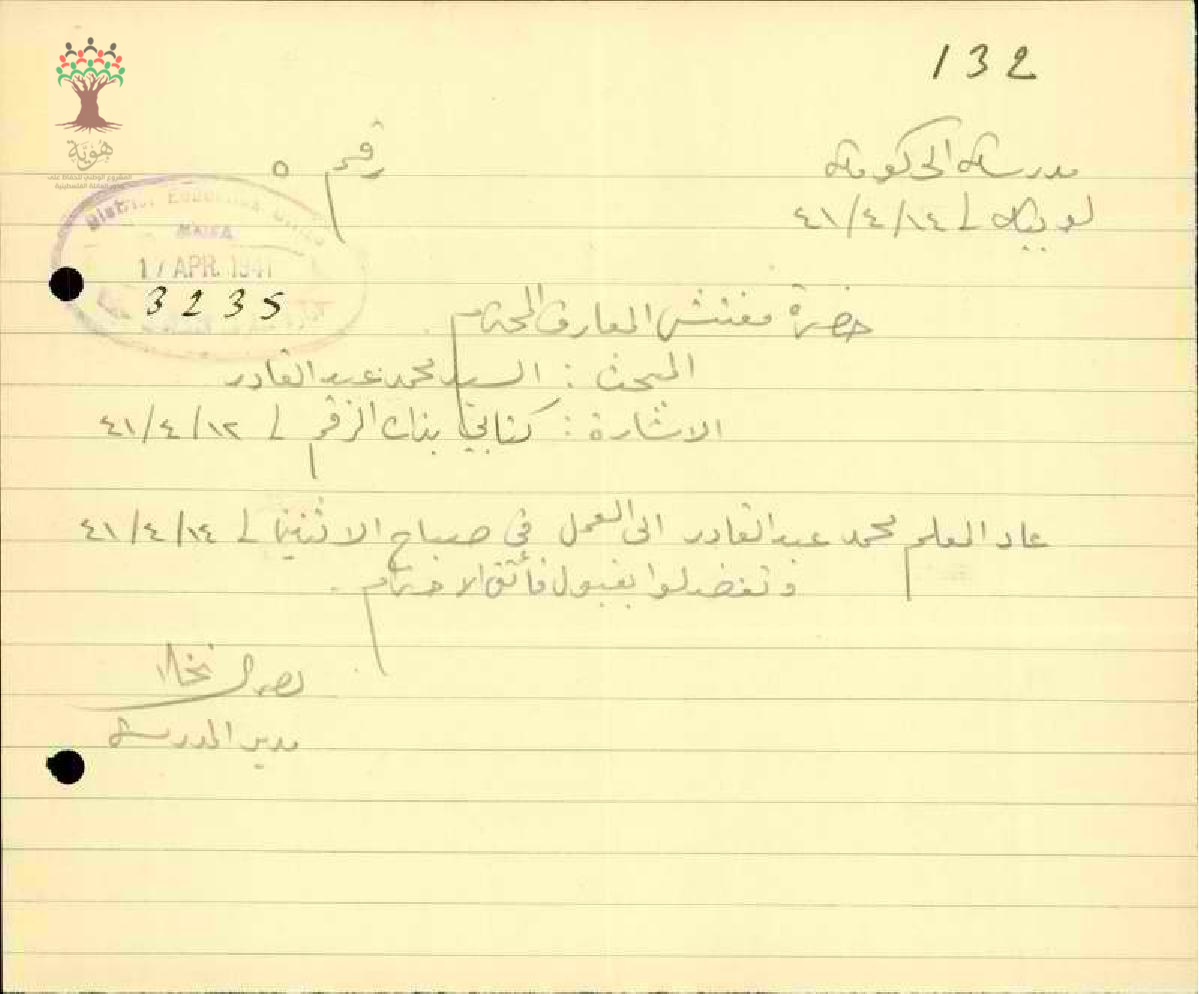 132
هوية
المشروع الوطني للحفاظ على
جذور العائلة الفلسطينية
مدرسة الحكومة
رقم ٥
لوبيه في ١٤/٤/٤١
District Education Office
HAIFA
17 APR. 1941
3235
حضرة مفتش المعارف المحترم
المبحث : السيد محمد عبد القادر
الاشارة : كتابي بذات الرقم في ١٢/٤/٤١
عاد المعلم محمد عبد القادر الى العمل في صباح الاثنين في ١٤/٤/٤١
وتفضلوا بقبول فائق الاحترام .
مدير المدرسة